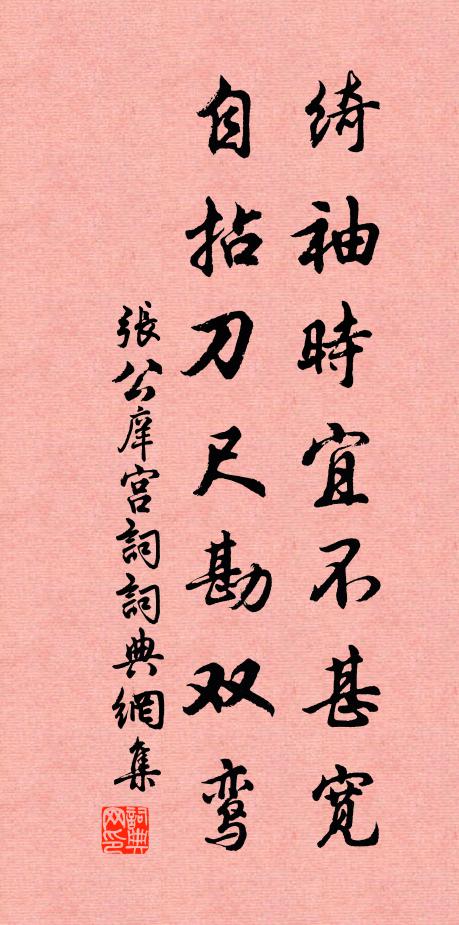 绮袖時宜不甚寬
自拈刀尺勘双鸾
張公庠宫詞詞典網集
詞典网印